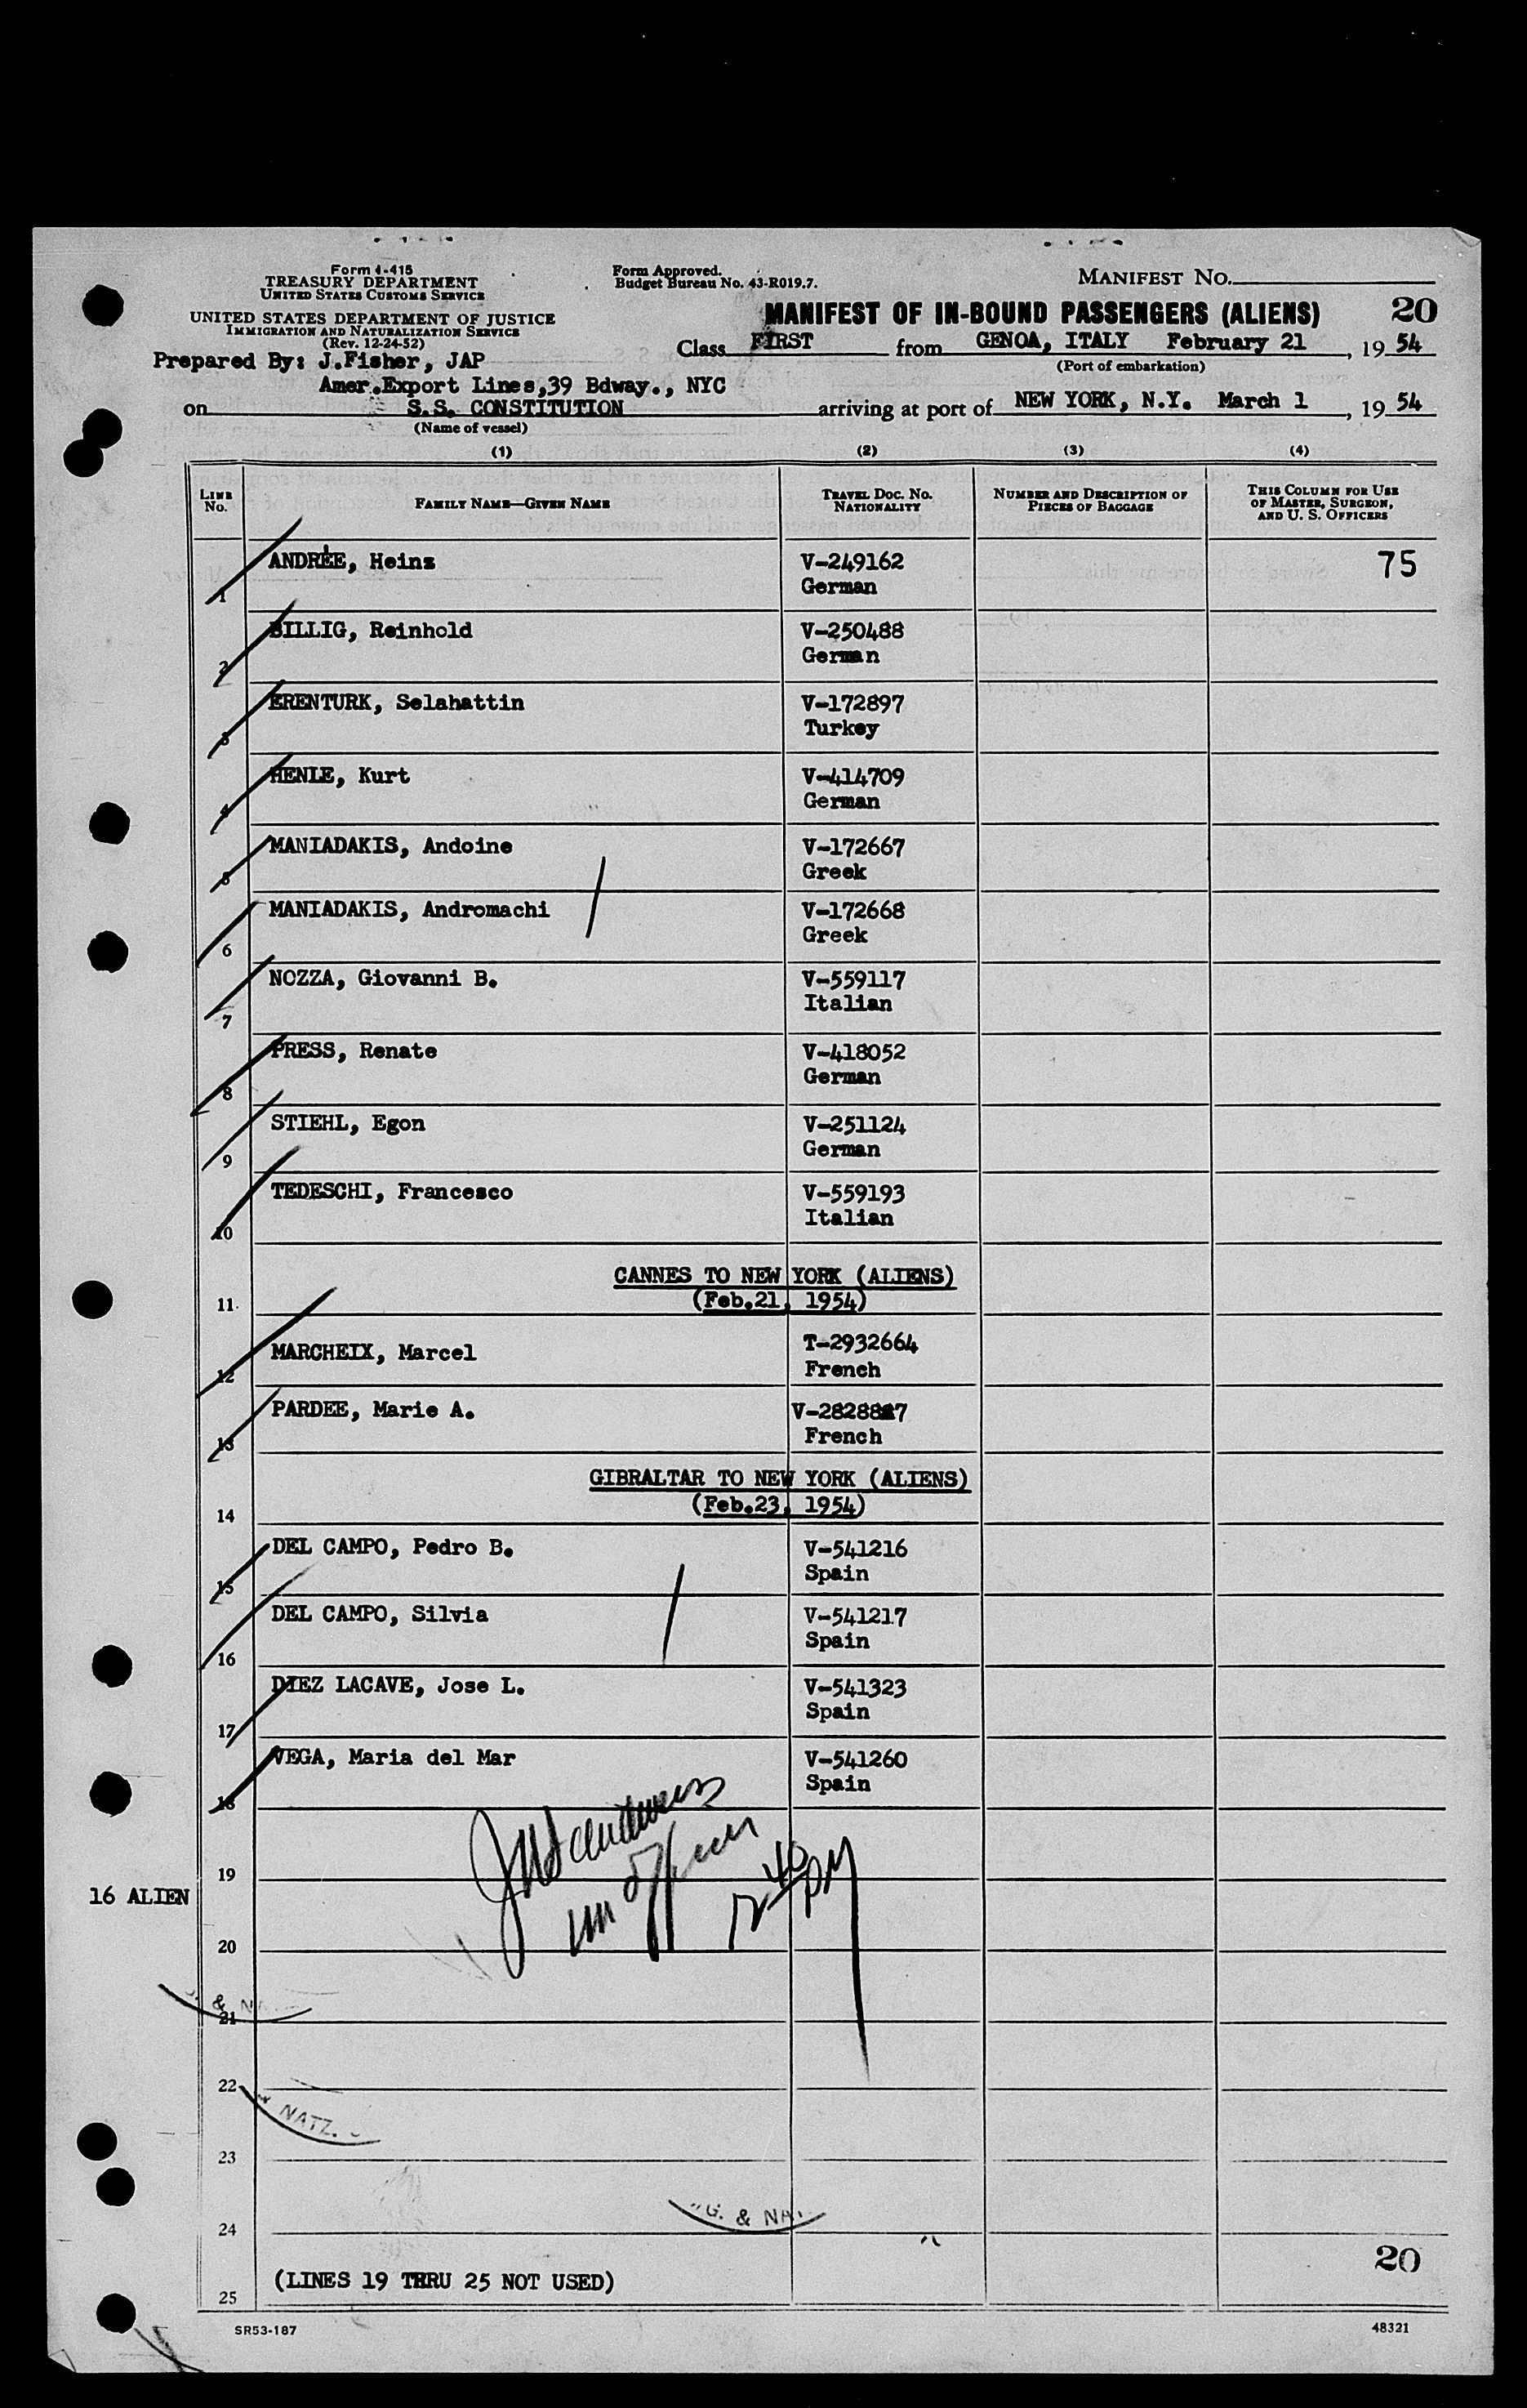 Form I-415
TREASURY DEPARTMENT
UNITED STATES CUSTOMS SERVICE
UNITED STATES DEPARTMENT OF JUSTICE
IMMIGRATION AND NATURALIZATION SERVICE
(Rev. 12-24-52)
Form Approved.
Budget Bureau No. 43-R019.7.
MANIFEST NO.
MANIFEST OF IN-BOUND PASSENGERS (ALIENS) 20
Prepared By: J.Fisher, JAP
Amer.Export Lines,39 Bdway., NYC
Class FIRST from GENOA, ITALY February 21, 1954
(Port of embarkation)
on S.S. CONSTITUTION arriving at port of NEW YORK, N.Y. March 1, 1954
(Name of vessel)
(1) (2) (3) (4)
LINE NO. FAMILY NAME—GIVEN NAME TRAVEL DOC. NO. NATIONALITY NUMBER AND DESCRIPTION OF PIECES OF BAGGAGE THIS COLUMN FOR USE OF MASTER, SURGEON, AND U. S. OFFICERS
1 ANDRÉE, Heinz V-249162 75
German
2 BILLIG, Reinhold V-250488
German
3 ERENTURK, Selahattin V-172897
Turkey
4 HENLE, Kurt V-414709
German
5 MANIADAKIS, Andoine V-172667
Greek
6 MANIADAKIS, Andromachi V-172668
Greek
7 NOZZA, Giovanni B. V-559117
Italian
8 PRESS, Renate V-418052
German
9 STIEHL, Egon V-251124
German
10 TEDESCHI, Francesco V-559193
Italian
CANNES TO NEW YORK (ALIENS)
11 (Feb.21, 1954)
12 MARCHEIX, Marcel T-2932664
French
13 PARDEE, Marie A.
French
GIBRALTAR TO NEW YORK (ALIENS)
14 (Feb.23, 1954)
15 DEL CAMPO, Pedro B. V-541216
Spain
16 DEL CAMPO, Silvia V-541217
Spain
17 DIEZ LACAVE, Jose L. V-541323
Spain
18 VEGA, Maria del Mar V-541260
Spain
19
16 ALIEN
12 40 PM
20
21
& N
22
NATZ.
23
G. & NA
24
20
25 (LINES 19 THRU 25 NOT USED)
SR53-187 48321